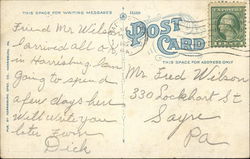 THIS SPACE FOR WRITING MESSAGES
POST CARD
THIS SPACE FOR ADDRESS ONLY
Friend Mr Wilson
I arrived all o.k
in Harrisburg. Am
going to spend
a few days here
Will write you
later From
Dick
Mr. Fred Wilson
330 Lockhart St
Sayre
Pa